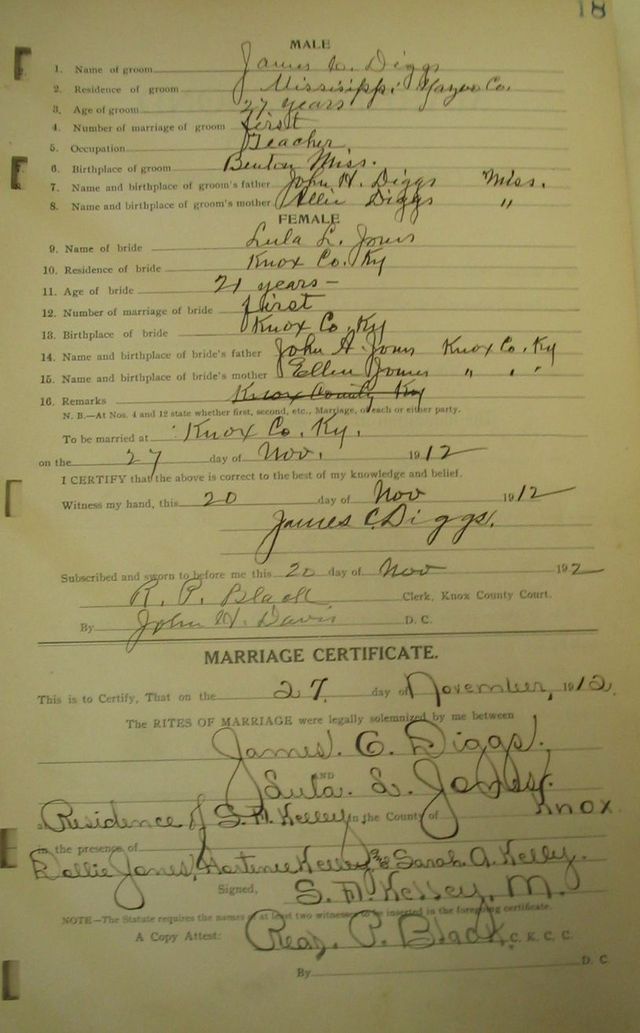 18
MALE
1. Name of groom James C. Diggs
2. Residence of groom Mississippi Yazoo Co.
3. Age of groom 27 years
4. Number of marriage of groom first
5. Occupation Teacher
6. Birthplace of groom Benton Miss.
7. Name and birthplace of groom's father John H. Diggs Miss.
8. Name and birthplace of groom's mother Ellie Diggs "
FEMALE
9. Name of bride Lula L. Jones
10. Residence of bride Knox Co. Ky
11. Age of bride 21 years
12. Number of marriage of bride first
13. Birthplace of bride Knox Co. Ky
14. Name and birthplace of bride's father John A. Jones Knox Co, Ky
15. Name and birthplace of bride's mother Ellen Jones " " "
16. Remarks Knox County Ky
N. B.—At Nos. 4 and 12 state whether first, second, etc., Marriage, of each or either party.
To be married at Knox Co. Ky.
on the 27 day of Nov. 1912
I CERTIFY that the above is correct to the best of my knowledge and belief.
Witness my hand, this 20 day of Nov 1912
James C. Diggs.
Subscribed and sworn to before me this 20 day of Nov 192
R. P. Black Clerk, Knox County Court.
By John W. Davis D. C.
MARRIAGE CERTIFICATE.
This is to Certify, That on the 27 day of November, 1912
The RITES OF MARRIAGE were legally solemnized by me between
James. C. Diggs.
AND
Lula. L. Jones.
at Residence of S. M. Kelley in the County of Knox
in the presence of
Dollie Jones, Kelley & Sarah A. Kelly.
Signed, S. M. Kelley, M.
NOTE—The Statute requires the names of at least two witnesses to be inserted in the foregoing certificate.
A Copy Attest: P. Black, C. K. C. C.
By D. C.